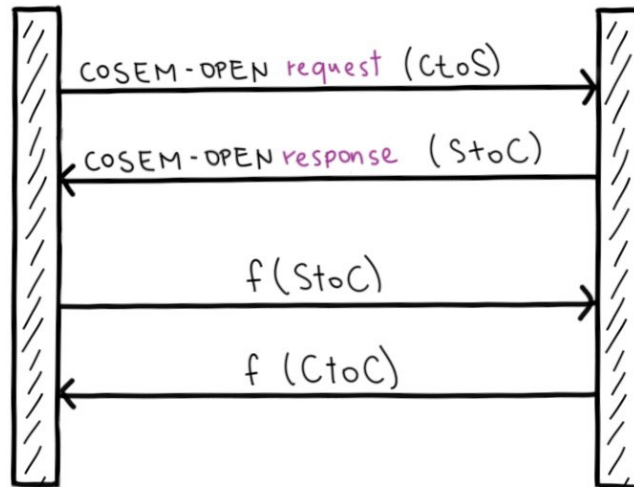 COSEM-OPEN request (CtoS)
COSEM-OPEN response (StoC)
f(StoC)
f (CtoC)